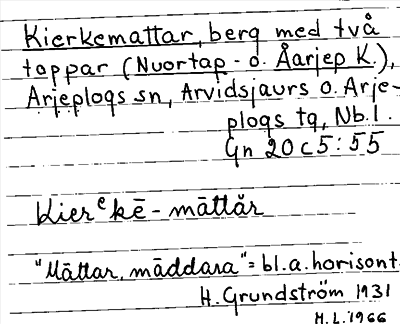 Kierkemattar, berg med två
toppar (Nuortap- o. Åarjep K.),
Arjeplogs sn, Arvidsjaurs o. Arje-
plogs tg, Nb.l.
Gn 20 c 5:55
Kierᵉkē-māttăr
"Māttar, māddara" = bl.a. horisont
H. Grundström 1931
H.L. 1966